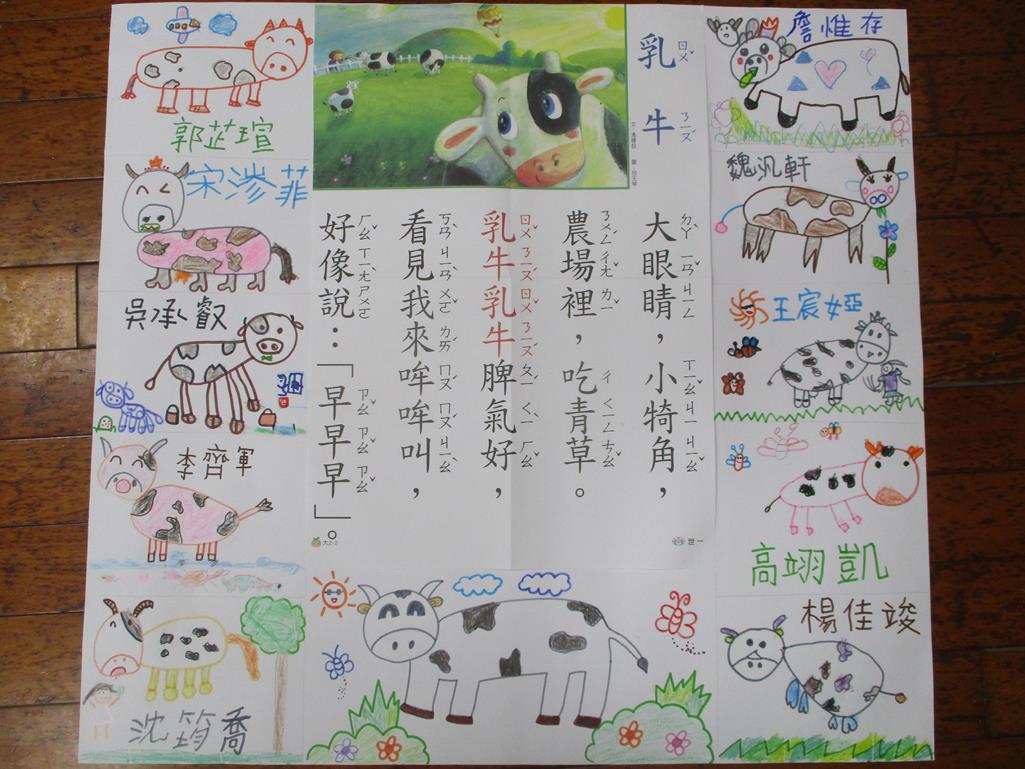 乳牛
大眼睛，小犄角，
農場裡，吃青草。
乳牛乳牛脾氣好，
看見我來哞哞叫，
好像說：「早早早」。
大2-2
世一
郭芷瑄
宋滲菲
吳承叡
李齊軍
沈筠喬
詹惟存
魏汎軒
王宸婭
高翊凱
楊佳竣